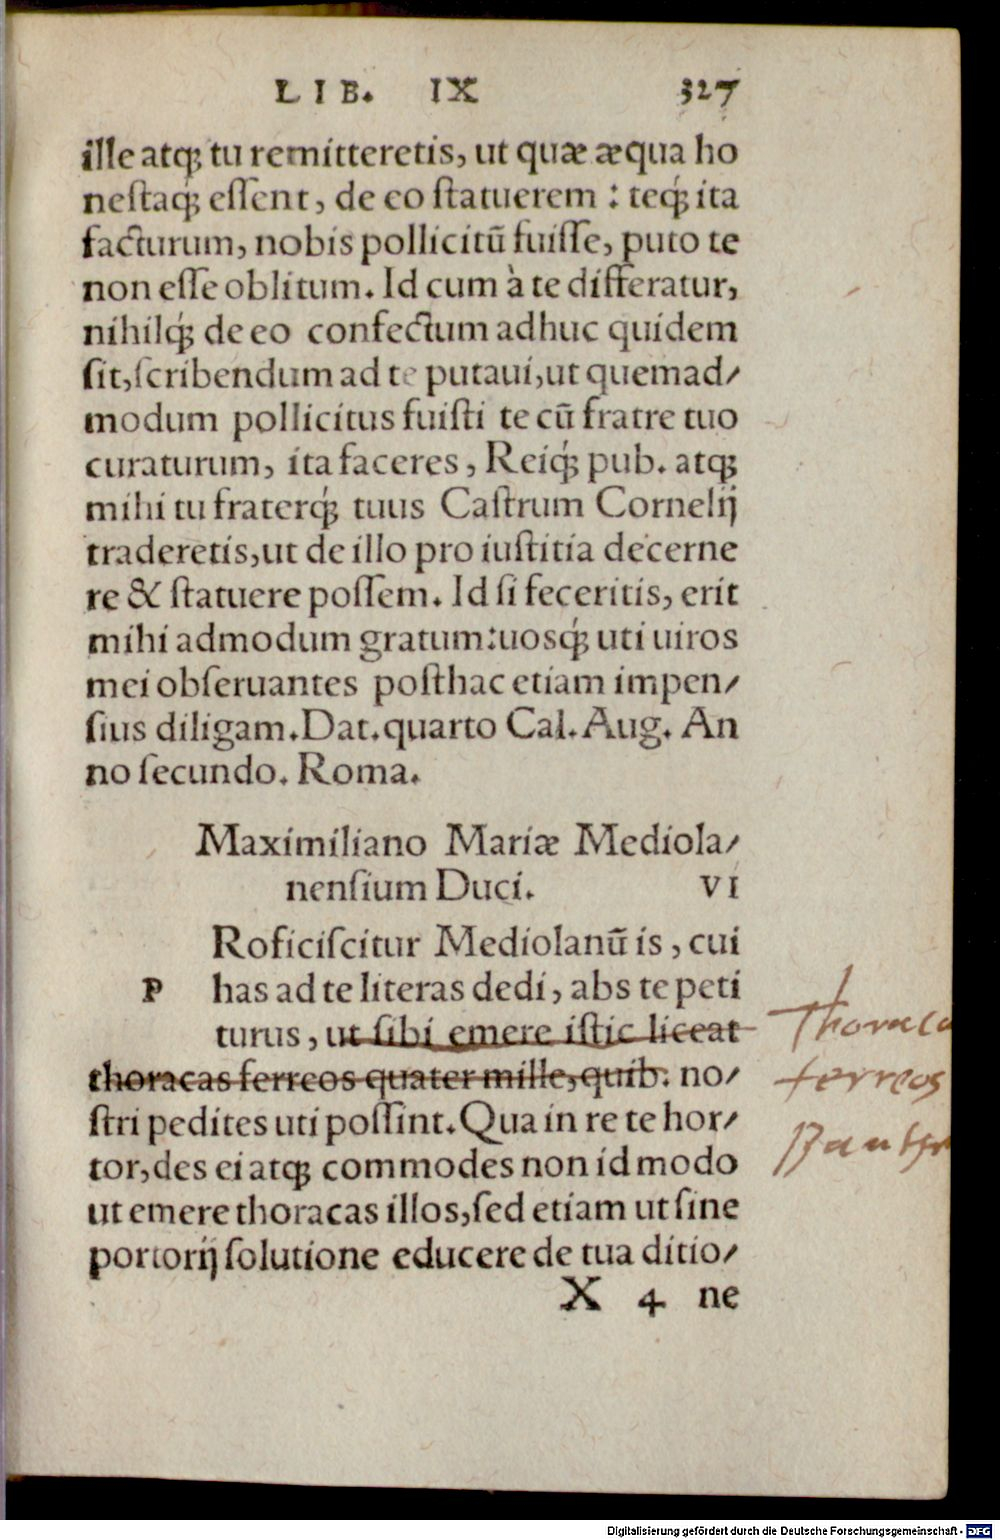 LIB. IX 327
ille atq́; tu remitteretis, ut quæ æqua ho
nestaq́; eſſent, de eo ſtatuerem : teq́; ita
facturum, nobis pollicitũ fuiſſe, puto te
non eſſe oblitum. Id cum à te differatur,
nihilq́; de eo confectum adhuc quidem
ſit, ſcribendum ad te putaui, ut quemad/
modum pollicitus fuiſti te cũ fratre tuo
curaturum, ita faceres, Reiq́; pub. atq́;
mihi tu fraterq́; tuus Caſtrum Cornelij
traderetis, ut de illo pro iuſtitia decerne
re & ſtatuere poſſem. Id ſi feceritis, erit
mihi admodum gratum: uosq́; uti uiros
mei obſeruantes poſthac etiam impen/
ſius diligam. Dat. quarto Cal. Aug. An
no ſecundo. Roma.
Maximiliano Mariæ Mediola/
nenſium Duci. VI
Roficiſcitur Mediolanũ is, cui
P has ad te literas dedi, abs te peti
turus, ut ſibi emere iſtic liceat
thoracas ferreos quater mille, quib. no/
ſtri pedites uti poſſint. Qua in re te hor/
tor, des ei atq́; commodes non id modo
ut emere thoracas illos, ſed etiam ut ſine
portorij ſolutione educere de tua ditio/
X 4 ne
Thoraca
ferreos
Digitalisierung gefördert durch die Deutsche Forschungsgemeinschaft - DFG